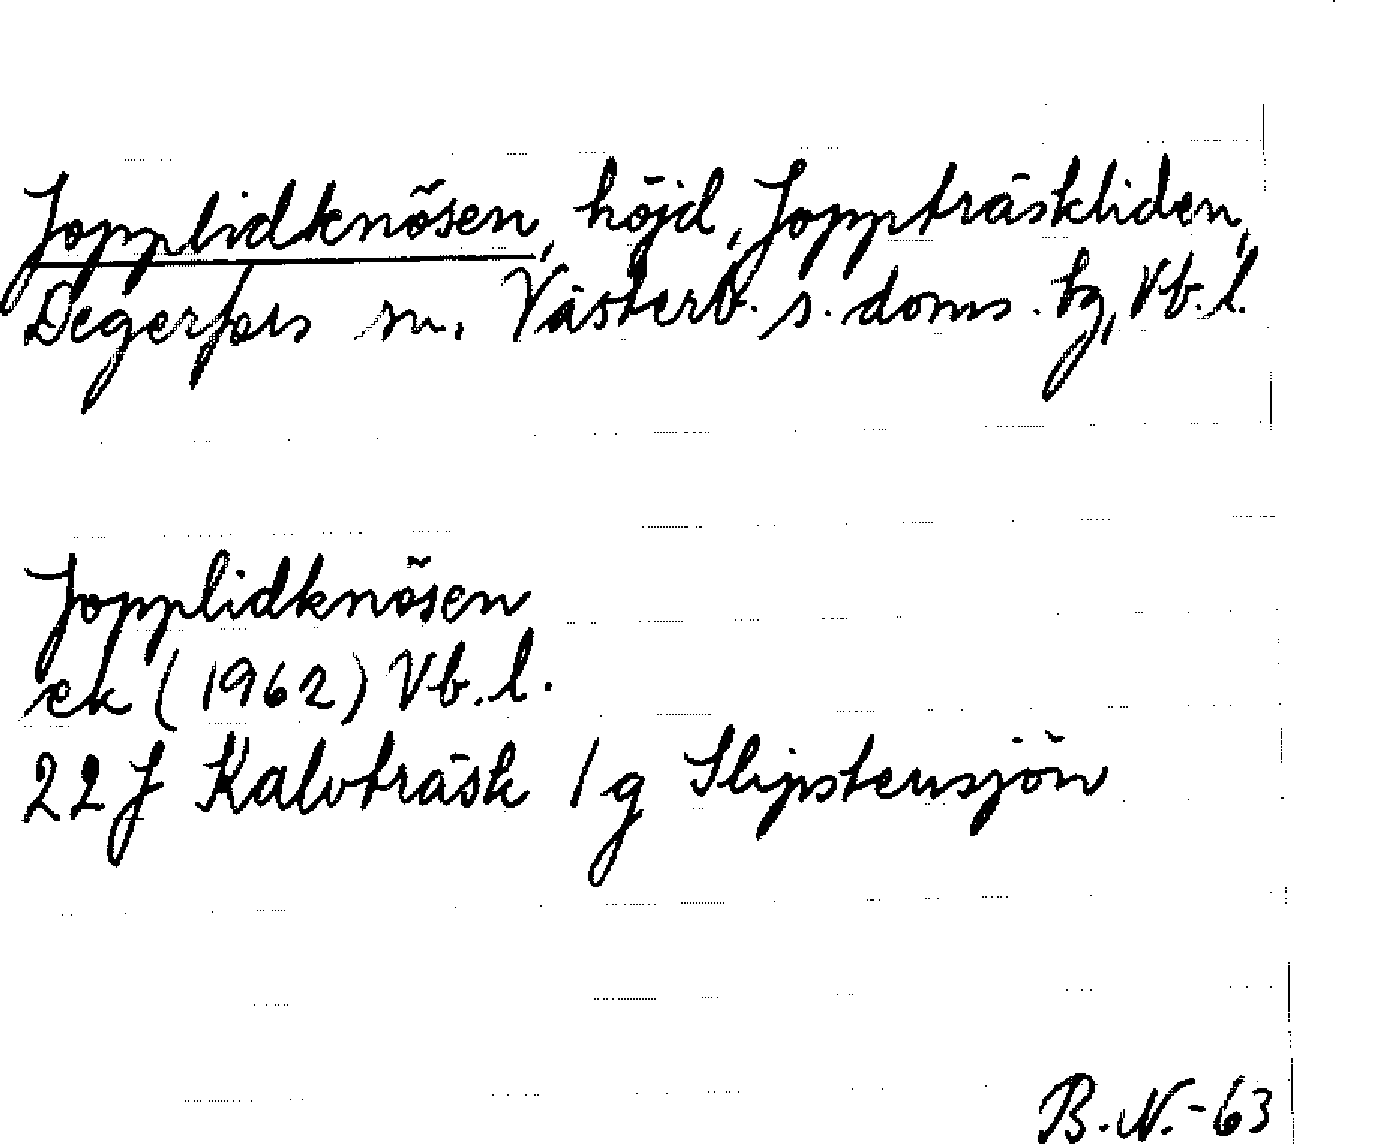 Jopplidknösen, höjd, Joppträskliden,
Degerfors sn. Västerb. s. doms. tg, Vb. l.
Jopplidknösen
ek (1962) Vb. l.
22 J Kalvträsk 1 g Slipstensjön
B. N. - 63